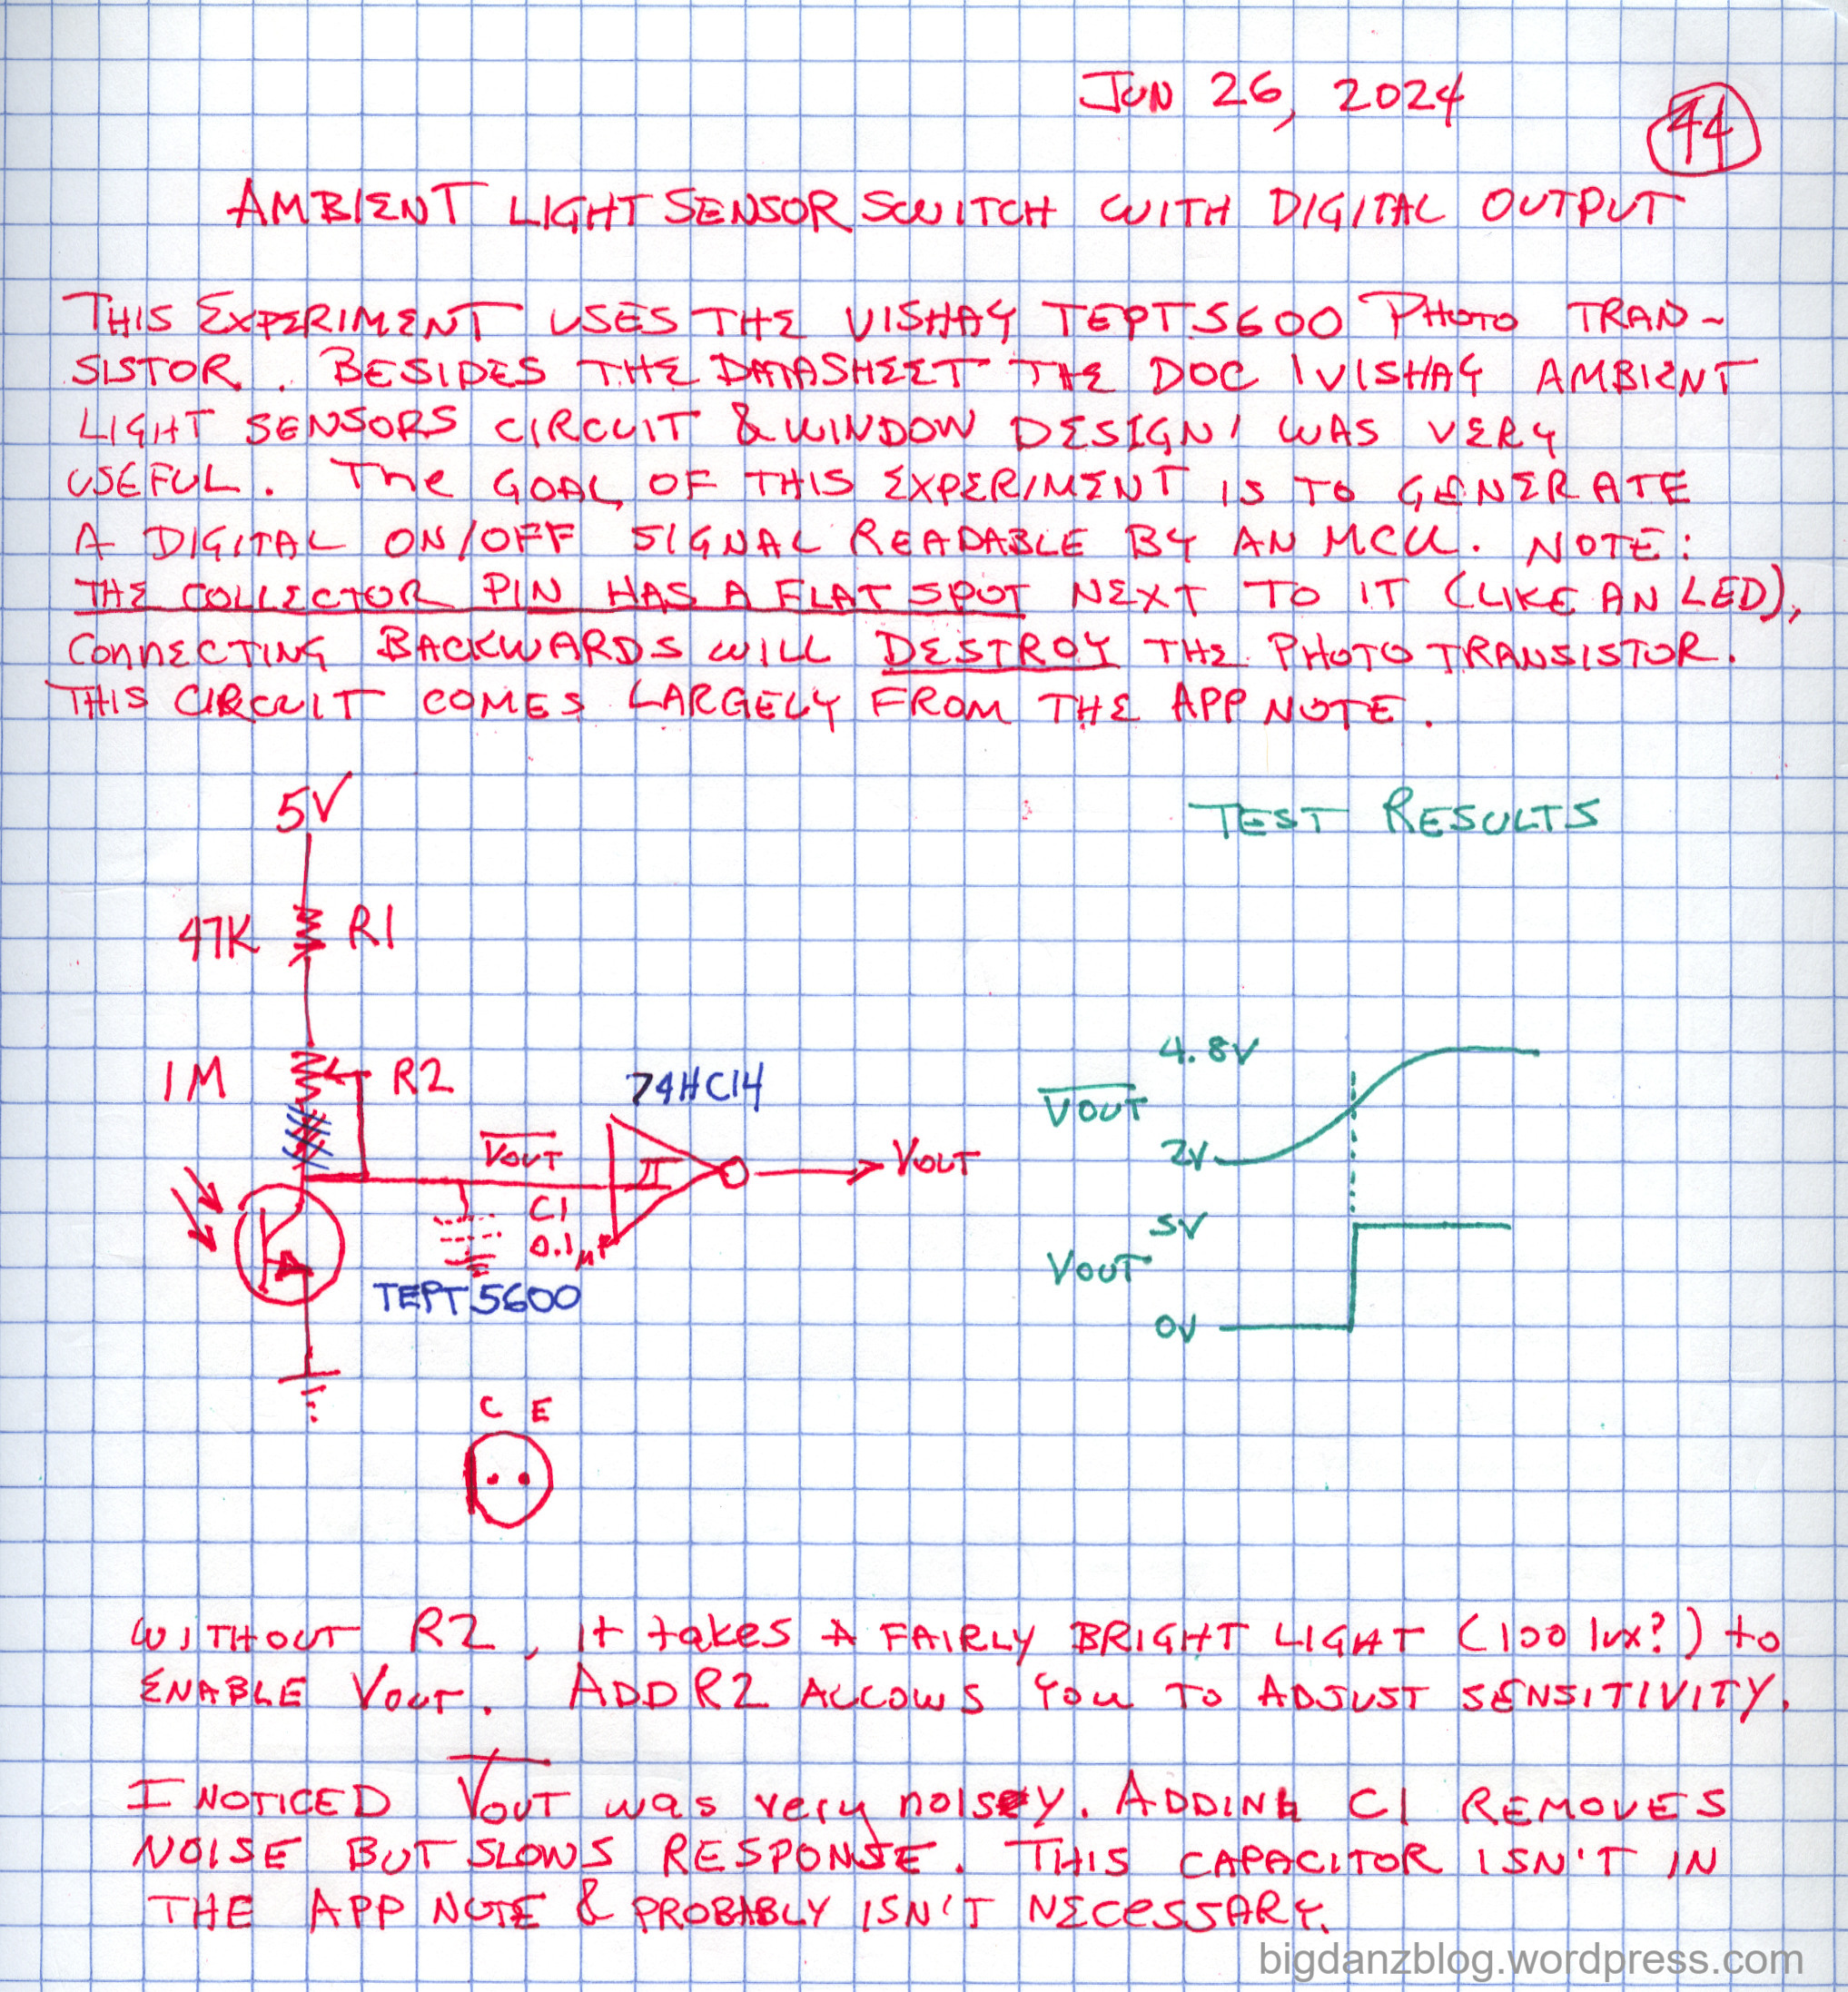 JUN 26, 2024
44
AMBIENT LIGHT SENSOR SWITCH WITH DIGITAL OUTPUT
THIS EXPERIMENT USES THE VISHAY TEPT5600 PHOTO TRAN-
SISTOR. BESIDES THE DATASHEET THE DOC 'VISHAY AMBIENT
LIGHT SENSORS CIRCUIT & WINDOW DESIGN' WAS VERY
USEFUL. The GOAL OF THIS EXPERIMENT IS TO GENERATE
A DIGITAL ON/OFF SIGNAL READABLE BY AN MCU. NOTE:
THE COLLECTOR PIN HAS A FLAT SPOT NEXT TO IT (LIKE AN LED),
CONNECTING BACKWARDS WILL DESTROY THE PHOTO TRANSISTOR.
THIS CIRCUIT COMES LARGELY FROM THE APP NOTE.
5V
TEST RESULTS
47K R1
1M R2
74HC14
V̅O̅U̅T̅
VOUT
C1
0.1µF
TEPT5600
4.8V
V̅O̅U̅T̅
2V
5V
VOUT
0V
C E
WITHOUT R2, it takes A FAIRLY BRIGHT LIGHT (100 lux?) to
ENABLE VOUT. ADD R2 ALLOWS YOU TO ADJUST SENSITIVITY.
I NOTICED V̅O̅U̅T̅ was very noisey. ADDING C1 REMOVES
NOISE BUT SLOWS RESPONSE. THIS CAPACITOR ISN'T IN
THE APP NOTE & PROBABLY ISN'T NECESSARY.
bigdanzblog.wordpress.com